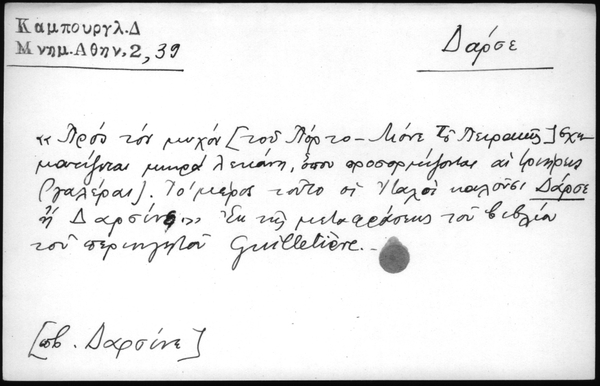 Καμπουργλ.Δ
Μνημ.Αθην.2,39
Δάρσε
«Πρός τόν μυχόν [τοῦ Πόρτο-Λιόνε τοῦ Πειραιῶς] σχη-
ματίζεται μικρά λεκάνη, ὅπου προσορμίζονται αἱ τριήρεις
(γαλέραι). Τό μέρος τοῦτο οἱ Ἰταλοί καλοῦσι Δάρσε
ἤ Δαρσίνε». Ἐκ τῆς μεταφράσεως τοῦ βιβλίου
τοῦ περιηγητοῦ Guilletière.
[πβ. Δαρσίνε]